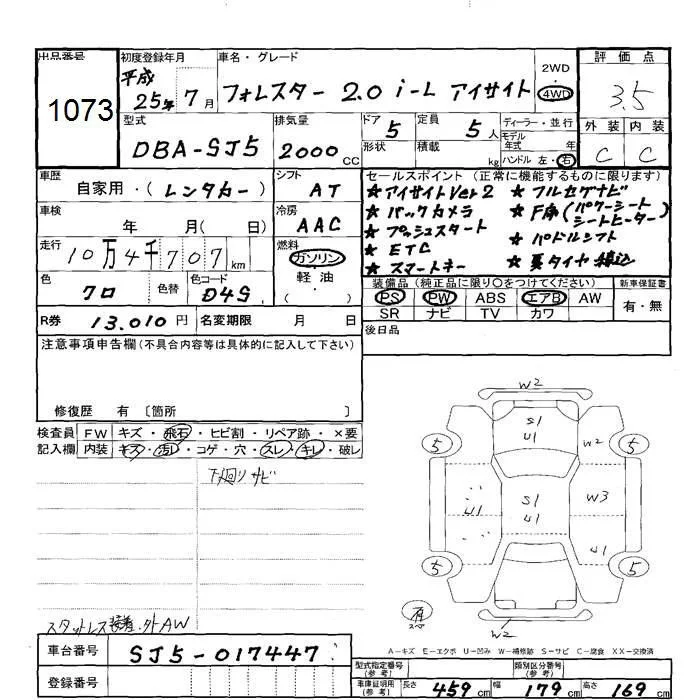 出品番号
1073
初度登録年月
平成
25年 7月
車名・グレード
フォレスター 2.0 i-L アイサイト
2WD
・
4WD
評価点
3.5
外装 内装
C C
型式
DBA-SJ5
排気量
2000cc
ドア 5
形状
定員 5人
積載 kg
ディーラー・並行
モデル
年式 年
ハンドル 左・右
車歴
自家用・(レンタカー)
シフト
AT
車検
年 月(日)
冷房
AAC
走行
10万4千707km
燃料
ガソリン
軽油
・
色
クロ
色替
色コード
D4S
R券 13.010円
名変期限 月 日
セールスポイント(正常に機能するものに限ります)
★アイサイトVer2
★バックカメラ
★プッシュスタート
★ETC
★スマートキー
★フルセグナビ
★F席(パワーシート
シートヒーター)
★パドルシフト
★夏タイヤ積込
装備品(純正品に限り○をつけてください)
PS PW ABS エアB AW
SR ナビ TV カワ
新車保証書
有・無
後日品
注意事項申告欄(不具合内容等は具体的に記入して下さい)
修復歴 有〔箇所 〕
検査員
記入欄
FW キズ・飛石・ヒビ割・リペア跡・×要
内装 キズ・汚レ・コゲ・穴・スレ・キレ・破レ
下廻りサビ
スタットレス装着・外AW
W2
S1
U1
5
W2
5
U1
S1
U1
W3
U1
5
5
W2
車台番号 SJ5-017447
登録番号
A-キズ E-エクボ U-凹み W-補修跡 S-サビ C-腐食 XX-交換済
型式指定番号
(参考)
類別区分番号
(参考)
車庫証明用
(参考)
長さ 459cm 幅 179cm 高さ 169cm